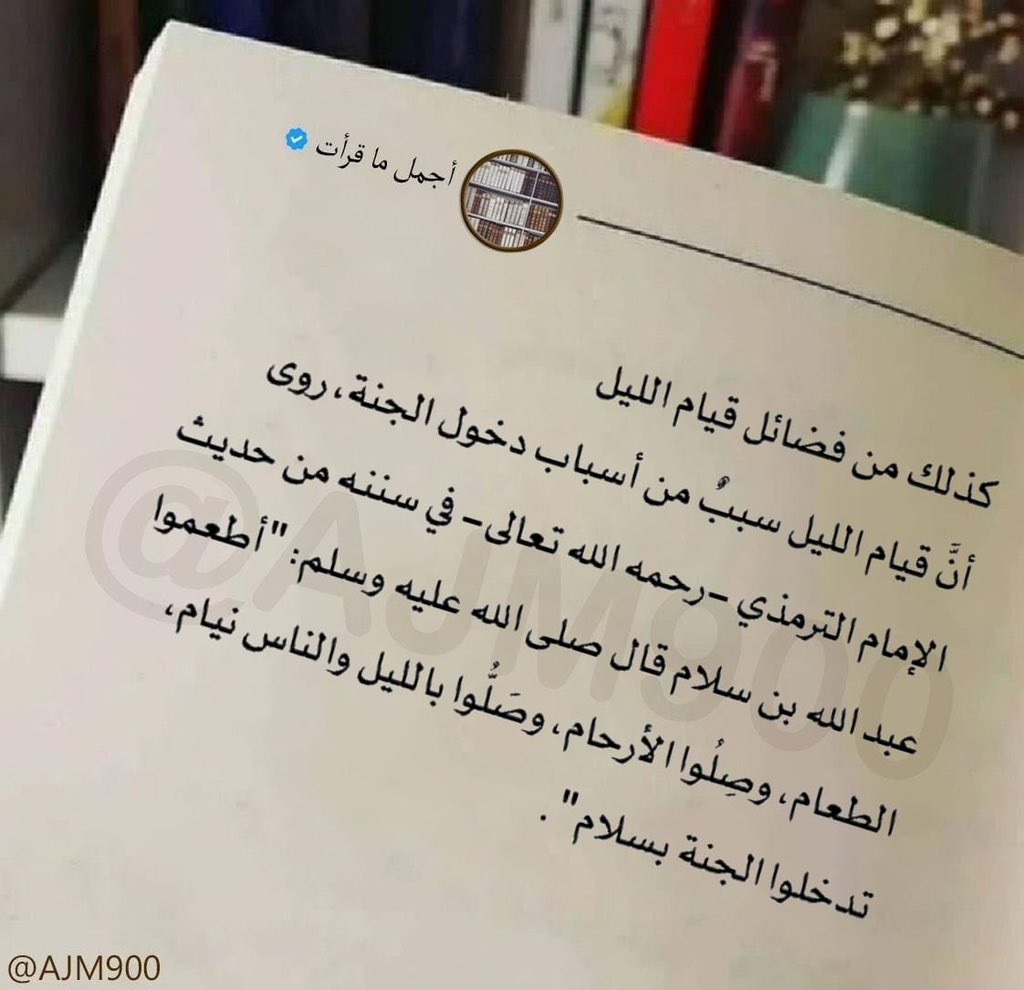 أجمل ما قرأت
كذلك من فضائل قيام الليل
أنَّ قيام الليل سببٌ من أسباب دخول الجنة، روى
الإمام الترمذي -رحمه الله تعالى- في سننه من حديث
عبد الله بن سلام قال صلى الله عليه وسلم: "أطعموا
الطعام، وصِلُوا الأرحام، وصَلُّوا بالليل والناس نيام،
تدخلوا الجنة بسلام" .
@AJM900
@AJM900